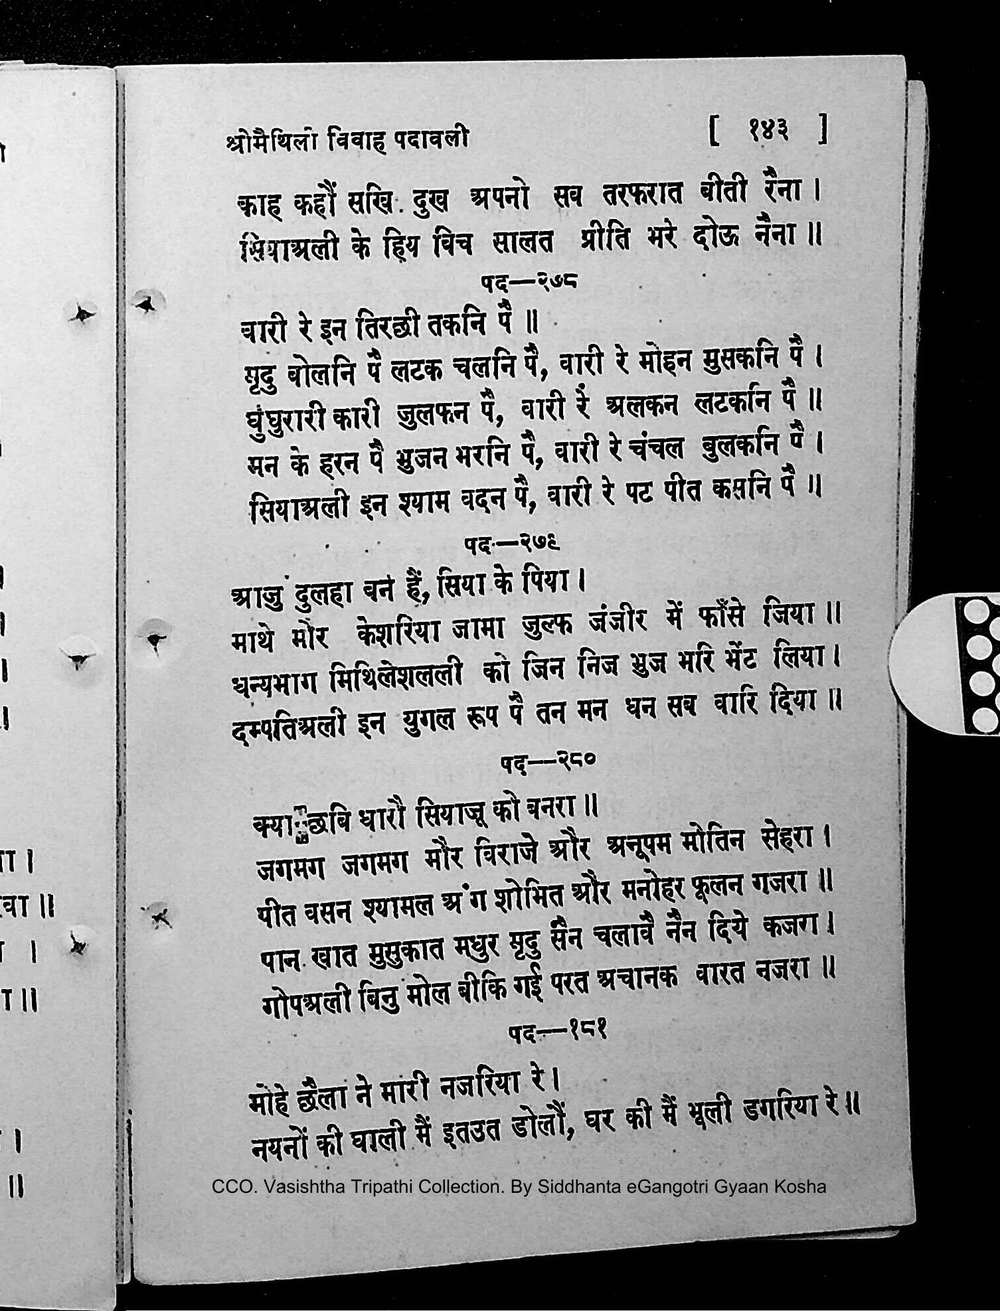 श्रीमैथिली विवाह पदावली [ १४३ ]
काह कहौं सखि दुख अपनो सब तरफरात बीती रैना ।
सियाअली के हिय बिच सालत प्रीति भरे दोऊ नैना ॥
पद—२७८
वारी रे इन तिरछी तकनि पै ॥
मृदु बोलनि पै लटक चलनि पै, वारी रे मोहन मुसकनि पै ।
घुंघुरारी कारी जुलफन पै, वारी रे अलकन लटकनि पै ॥
मन के हरन पै भुजन भरनि पै, वारी रे चंचल बुलकनि पै ।
सियाअली इन श्याम वदन पै, वारी रे पट पीत कसनि पै ॥
पद—२७९
आजु दुलहा बने हैं, सिया के पिया ।
माथे मौर केशरिया जामा जुल्फ जंजीर में फाँसे जिया ॥
धन्यभाग मिथिलेशलली को जिन निज भुज भरि भेंट लिया ।
दम्पतिअली इन युगल रूप पै तन मन धन सब वारि दिया ॥
पद—२८०
क्या छबि धारौ सियाजू को बनरा ॥
जगमग जगमग मौर विराजे और अनूपम मोतिन सेहरा ।
पीत वसन श्यामल अंग शोभित और मनोहर फूलन गजरा ॥
पान खात मुसुकात मधुर मृदु सैन चलावै नैन दिये कजरा ।
गोपअली बिनु मोल बीकि गई परत अचानक वारत नजरा ॥
पद—१८१
मोहे छैला ने मारी नजरिया रे ।
नयनों की घाली मैं इतउत डोलौं, घर की मैं भूली डगरिया रे ॥
CCO. Vasishtha Tripathi Collection. By Siddhanta eGangotri Gyaan Kosha